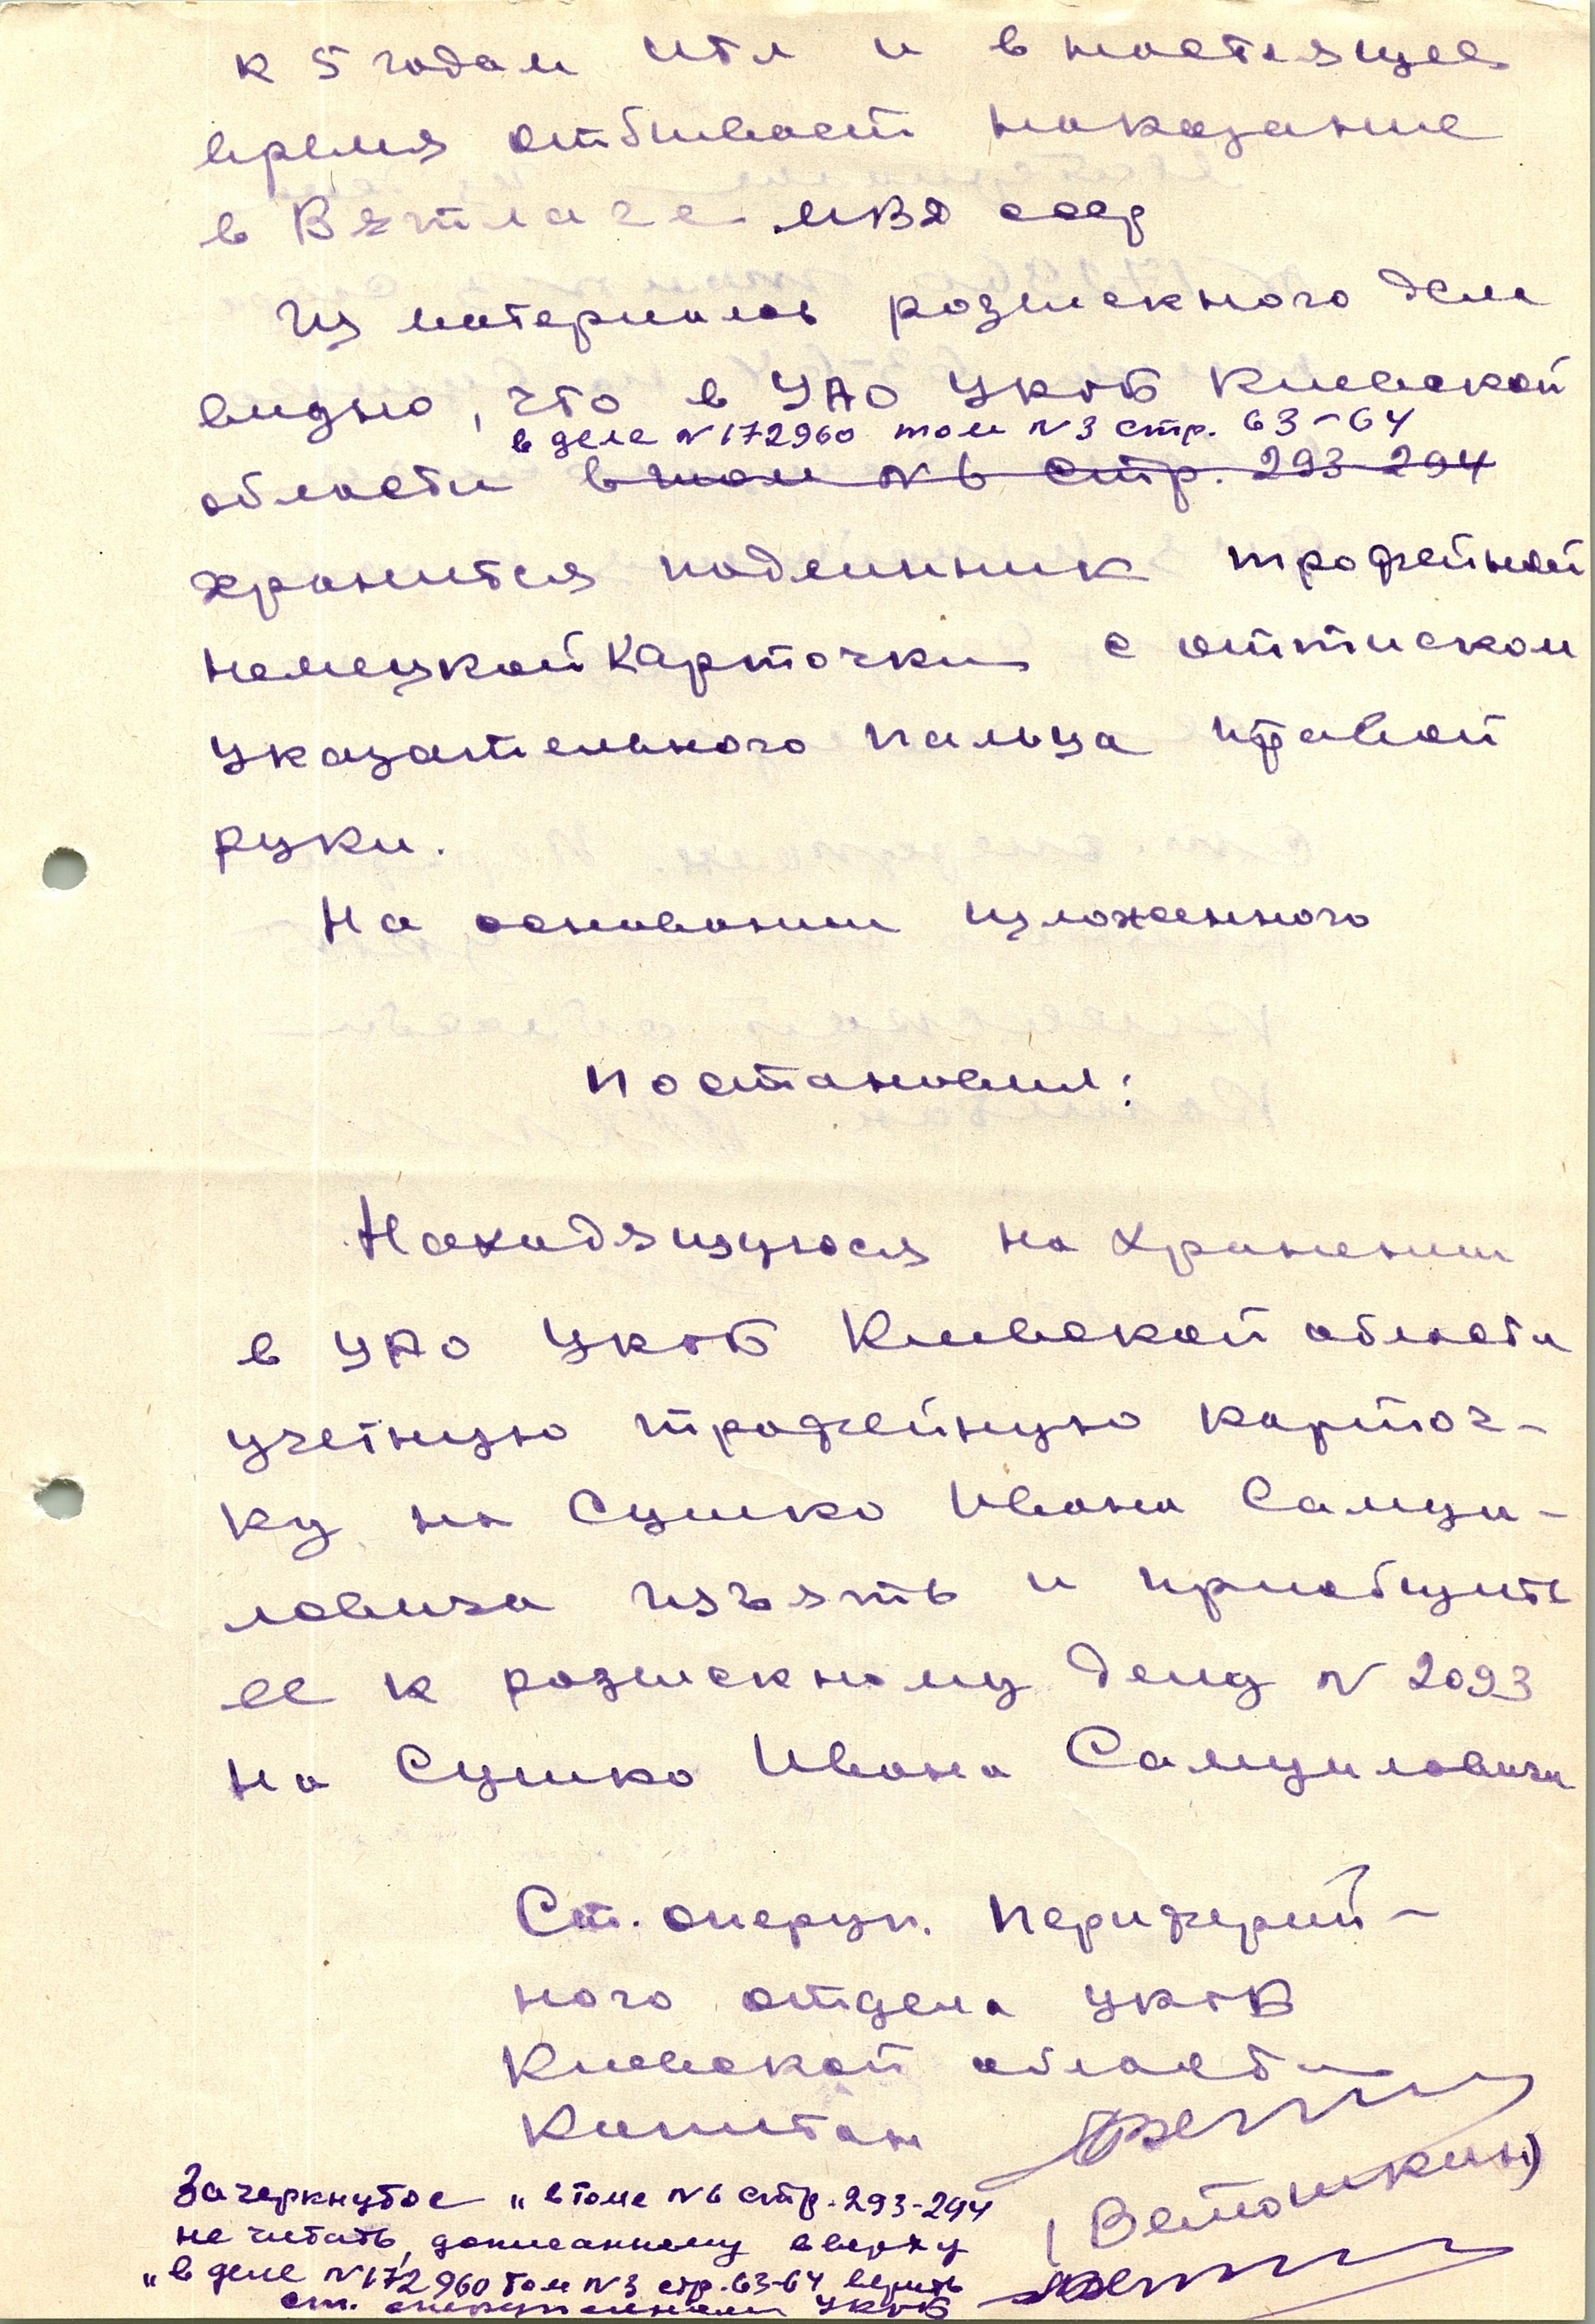 к 5 годам итл и в настоящее
время отбывает наказание
в Вятлаге МВД ссср
Из материалов розыскного дела
видно, что в УАО УКГБ Киевской
в деле № 172960 том № 3 стр. 63-64
области в том № 6 стр. 293-294
хранится подлинник трофейной
немецкой карточки с оттиском
указательного пальца правой
руки.
На основании изложенного
постановил:
Находящуюся на хранении
в УАО УКГБ Киевской области
учетную трофейную карточ-
ку на Сушко Ивана Самуи-
ловича изъять и приобщить
ее к розыскному делу № 2093
на Сушко Ивана Самуиловича
Ст. оперуп. периферий-
ного отдела УКГБ
Киевской области
Капитан
(Ветошкин)
Зачеркнутое „в томе № 6 стр. 293-294
не читать, дописанному вверху
„в деле № 172960 том № 3 стр. 63-64 верить
ст. оперуполномочен УКГБ